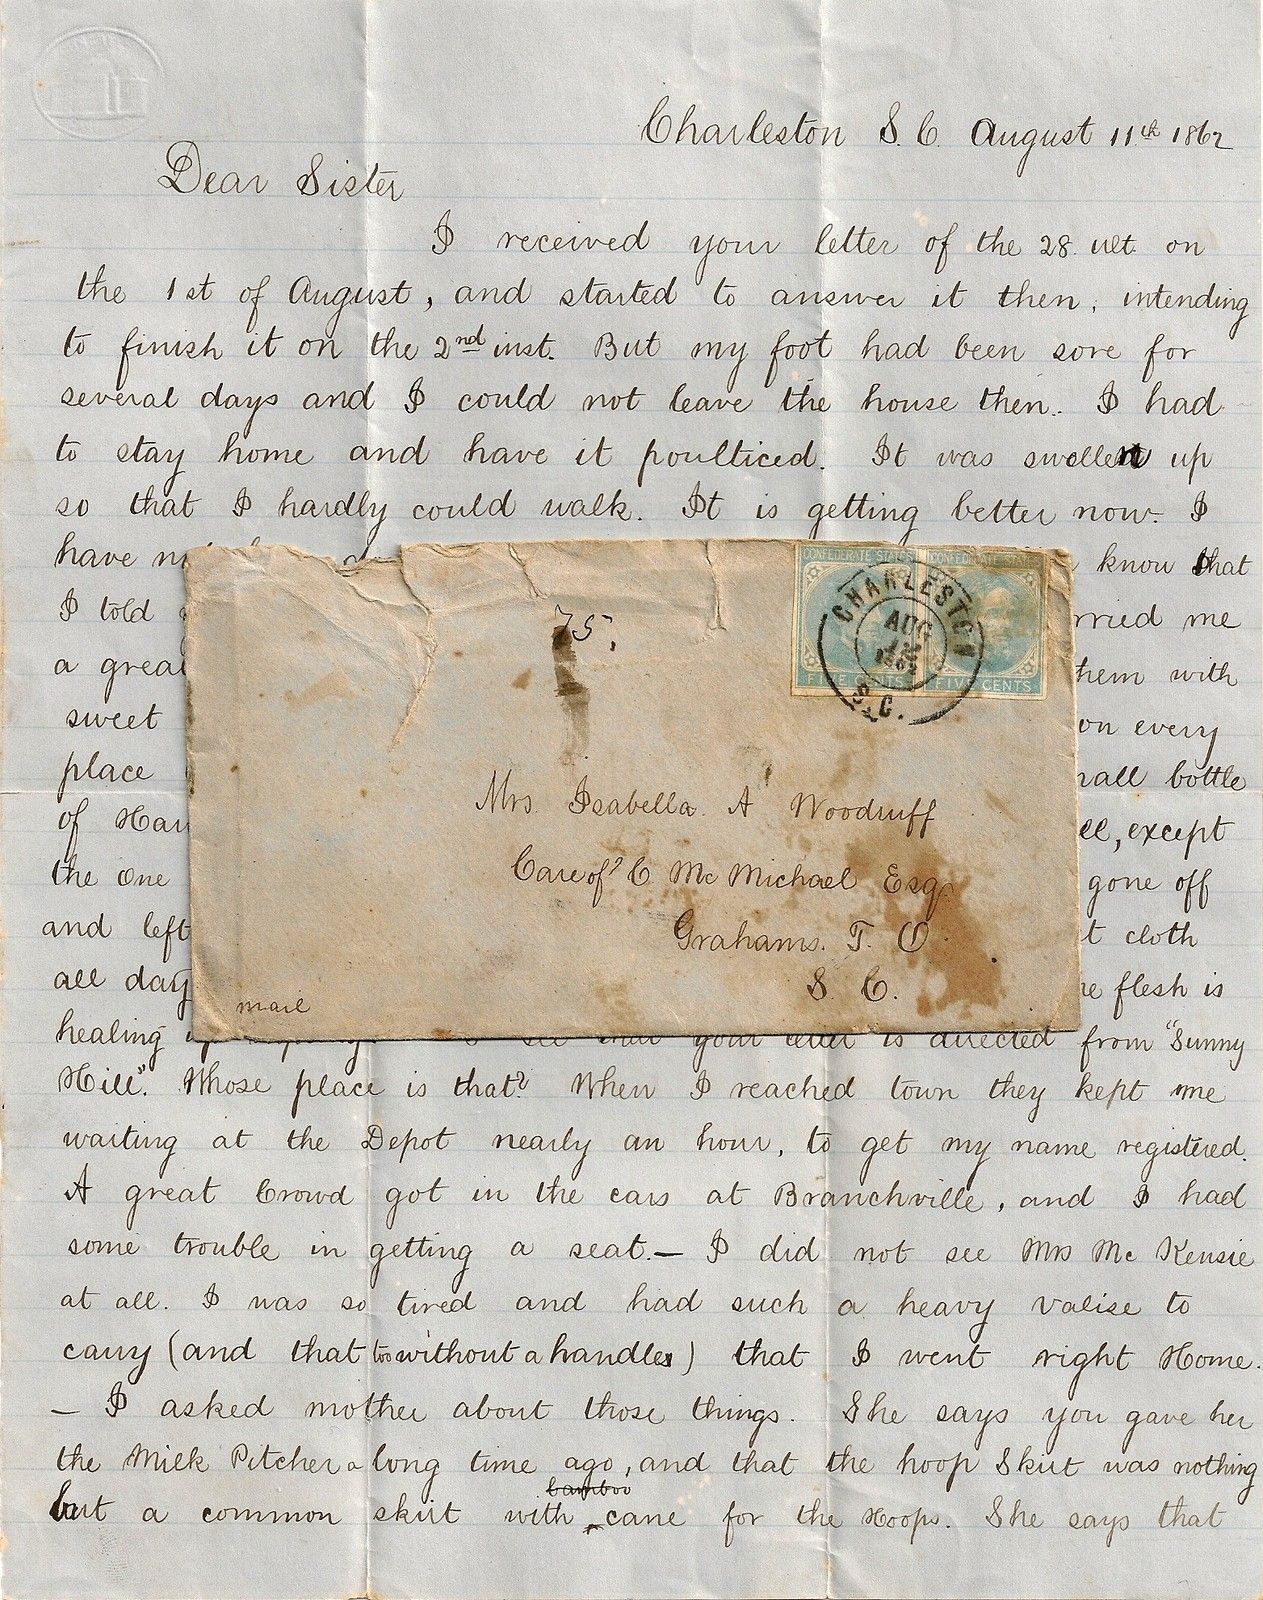 Charleston S. C. August 11th 1862
Dear Sister
I received your letter of the 28. ult. on
the 1st of August, and started to answer it then, intending
to finish it on the 2nd inst. But my foot had been sore for
several days and I could not leave the house then. I had
to stay home and have it poulticed. It was swollen up
so that I hardly could walk. It is getting better now. I
have know that
I told rried me
a great them with
sweet on every
place mall bottle
of ell, except
the one gone off
and left t cloth
all day e flesh is
healing see that your letter is directed from "Sunny
Hill." Whose place is that? When I reached town they kept me
waiting at the Depot nearly an hour, to get my name registered.
A great Crowd got in the cars at Branchville, and I had
some trouble in getting a seat. — I did not see Mrs McKensie
at all. I was so tired and had such a heavy valise to
carry (and that too without a handle) that I went right Home.
— I asked mother about those things. She says you gave her
the Milk Pitcher a long time ago, and that the hoop Skirt was nothing
bamboo
but a common skirt with cane for the Hoops. She says that
CONFEDERATE STATES
CONFEDERATE STATES
CHARLESTON
AUG
1862
S.C.
FIVE CENTS
FIVE CENTS
75.
Mrs. Isabella A Woodruff
Care of C McMichael Esq
Grahams. T. O.
S. C.
mail